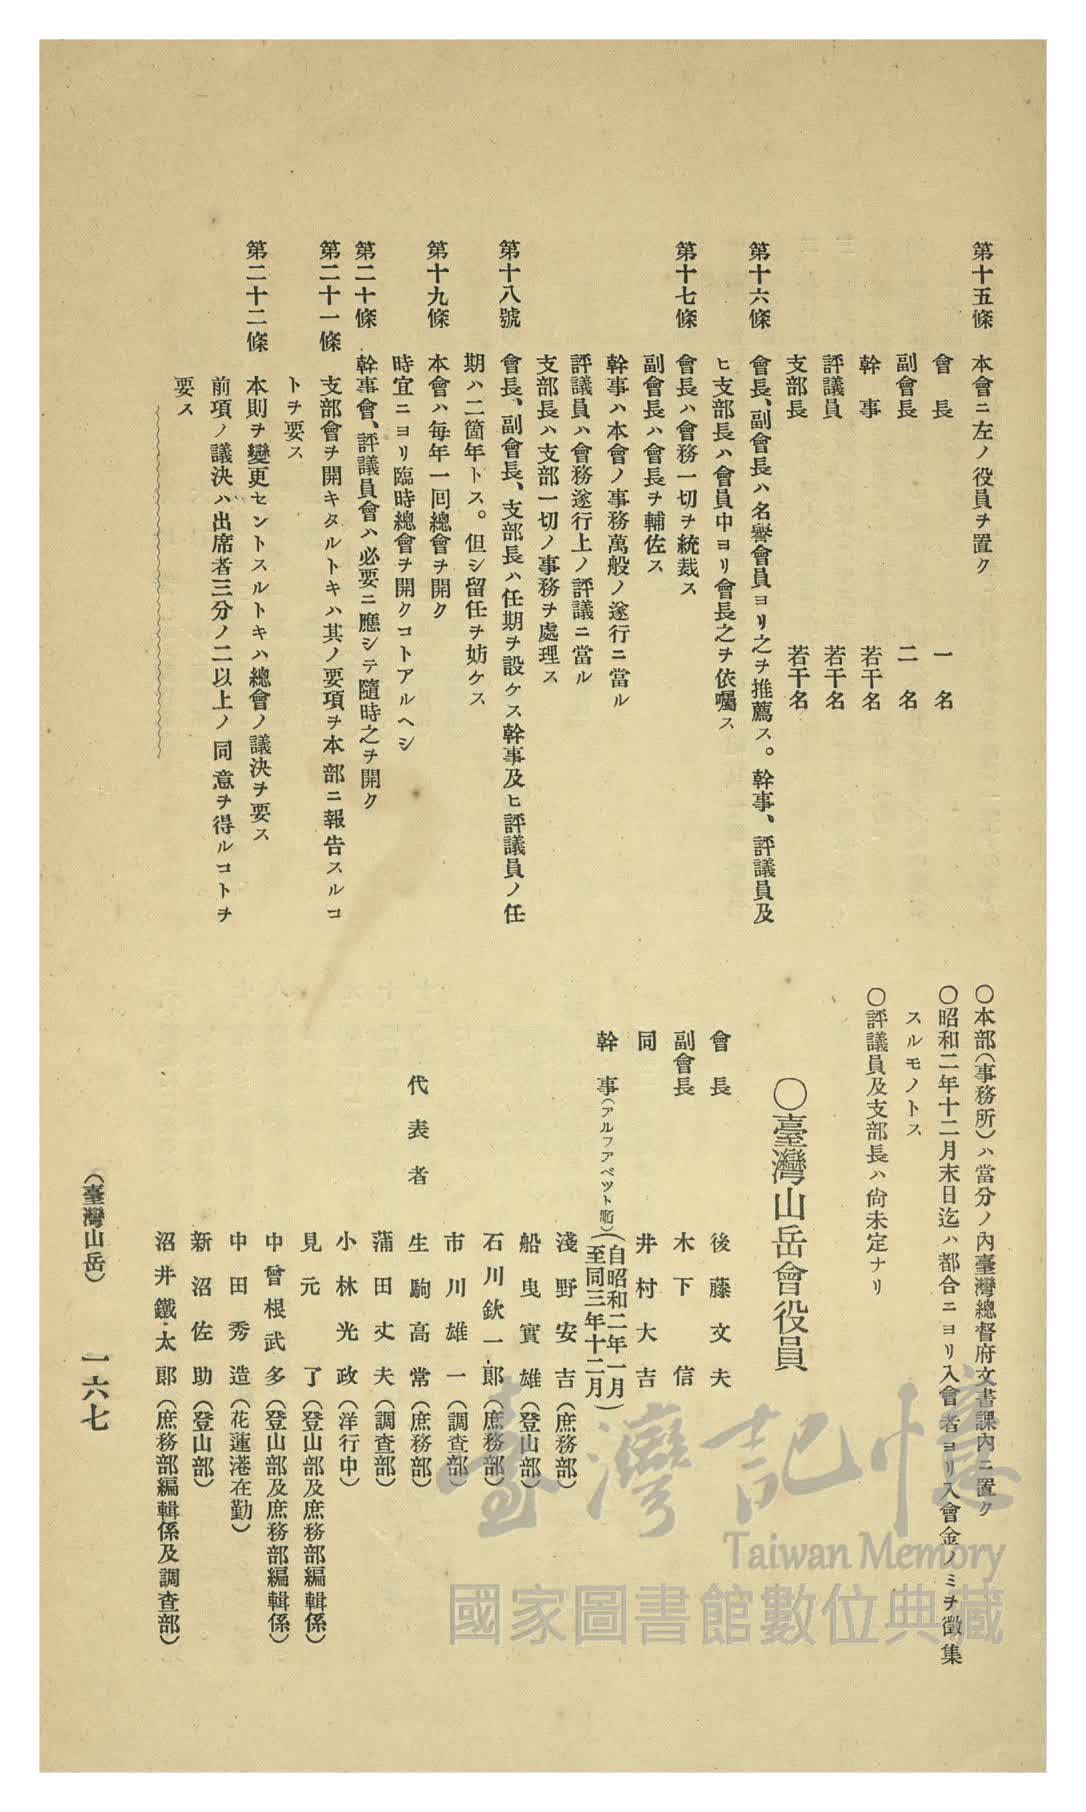 第十五條　本會ニ左ノ役員ヲ置ク
會　長　一　名
副會長　二　名
幹　事　若干名
評議員　若干名
支部長　若干名
第十六條　會長、副會長ハ名譽會員ヨリ之ヲ推薦ス。幹事、評議員及
ヒ支部長ハ會員中ヨリ會長之ヲ依囑ス
第十七條　會長ハ會務一切ヲ統裁ス
副會長ハ會長ヲ輔佐ス
幹事ハ本會ノ事務萬般ノ遂行ニ當ル
評議員ハ會務遂行上ノ評議ニ當ル
支部長ハ支部一切ノ事務ヲ處理ス
第十八號　會長、副會長、支部長ハ任期ヲ設ケス幹事及ヒ評議員ノ任
期ハ二箇年トス。但シ留任ヲ妨ケス
第十九條　本會ハ每年一囘總會ヲ開ク
時宜ニヨリ臨時總會ヲ開クコトアルヘシ
第二十條　幹事會、評議員會ハ必要ニ應シテ隨時之ヲ開ク
第二十一條　支部會ヲ開キタルトキハ其ノ要項ヲ本部ニ報告スルコ
トヲ要ス
第二十二條　本則ヲ變更セントスルトキハ總會ノ議決ヲ要ス
前項ノ議決ハ出席者三分ノ二以上ノ同意ヲ得ルコトヲ
要ス
〇本部（事務所）ハ當分ノ內臺灣總督府文書課內ニ置ク
〇昭和二年十二月末日迄ハ都合ニヨリ入會者ヨリ入會金ノミヲ徵集
スルモノトス
〇評議員及支部長ハ尙未定ナリ
〇臺灣山岳會役員
會　長　後藤文夫
副會長　木下　信
同　井村大吉
幹　事（アルファベット順）（自昭和二年一月
至同三年十二月）
淺野安吉（庶務部）
船曳實雄（登山部）
石川欽一郎（庶務部）
市川雄一（調查部）
代表者　生駒高常（庶務部）
蒲田丈夫（調查部）
小林光政（洋行中）
見元　了（登山部及庶務部編輯係）
中曾根武多（登山部及庶務部編輯係）
中田秀造（花蓮港在勤）
新沼佐助（登山部）
沼井鐵太郎（庶務部編輯係及調查部）
（臺灣山岳）　一六七
臺灣記憶
Taiwan Memory
國家圖書館數位典藏